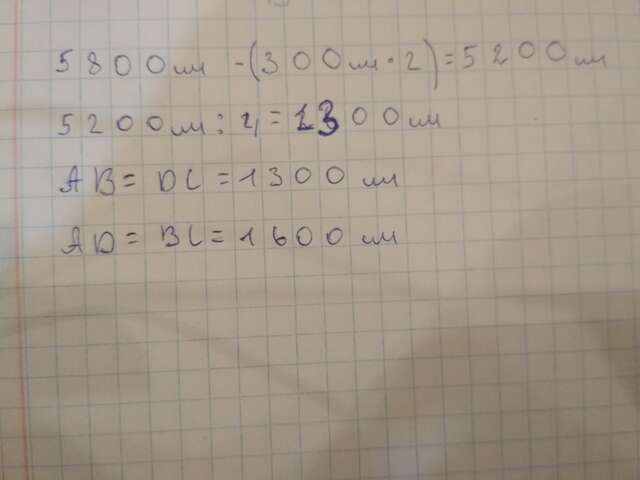 5800м - (300м · 2) = 5200м
5200м : 4 = 1300м
AB = DC = 1300м
AD = BC = 1600м